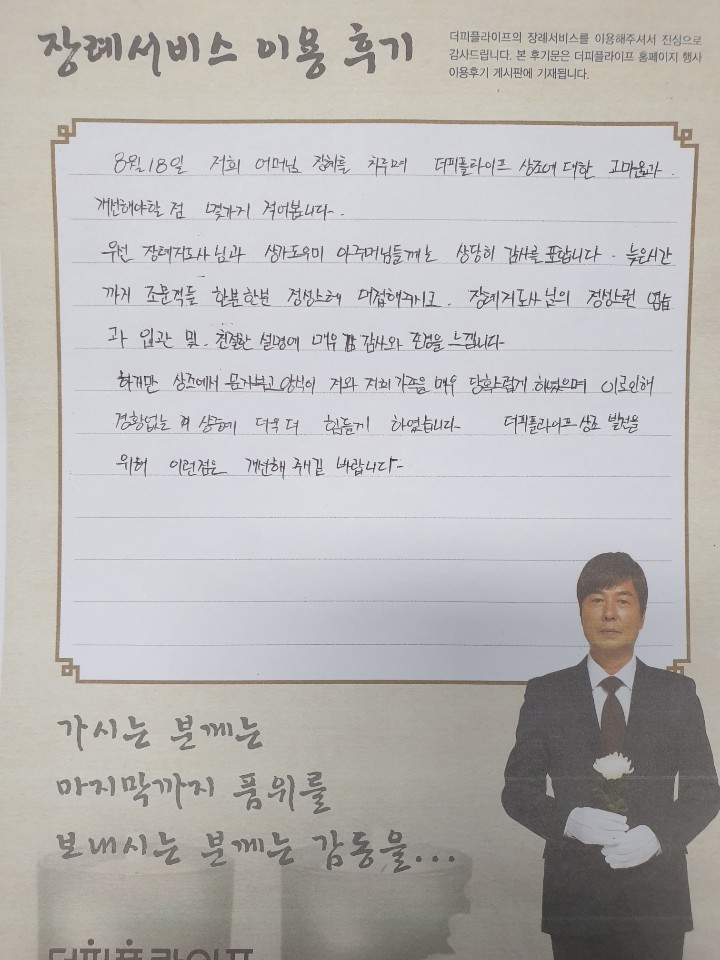 장례서비스 이용 후기
더피플라이프의 장례서비스를 이용해주셔서 진심으로
감사드립니다. 본 후기문은 더피플라이프 홈페이지 행사
이용후기 게시판에 기재됩니다.
8월 18일 저희 어머님 장례를 치루며 더피플라이프 상조에 대한 고마움과.
개선해야할 점 몇가지 적어봅니다.
우선 장례지도사님과 상가도우미 아주머님들께는 상당히 감사를 표합니다. 늦은시간
까지 조문객들 한분한분 정성스레 대접해주시고. 장례지도사님의 정성스런 염습
과 입관 및. 친절한 설명에 매우 감사와 존경을 느낍니다-
하지만 상조에서 문자부고양식이 저와 저희가족을 매우 당황스럽게 하였으며 이로인해
경황없는 상중에 더욱 더 힘들게 하였습니다- 더피플라이프상조 발전을
위해 이런점은 개선해 주시길 바랍니다-
가시는 분께는
마지막까지 품위를
보내시는 분께는 감동을...
더피플라이프